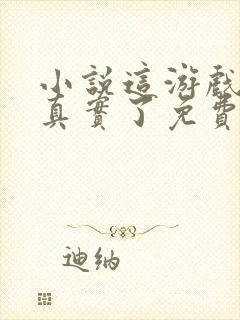 小説這游戲
真實了免費
迪纳